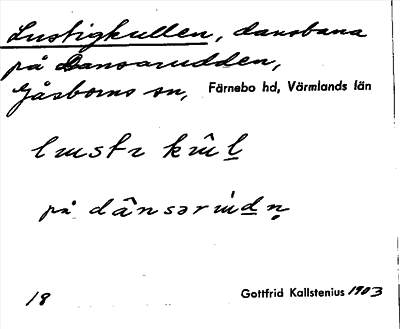 Lustigkullen, dansbana
på Dansarudden,
Gåsborns sn, Färnebo hd, Värmlands län
på
18 Gottfrid Kallstenius 1903